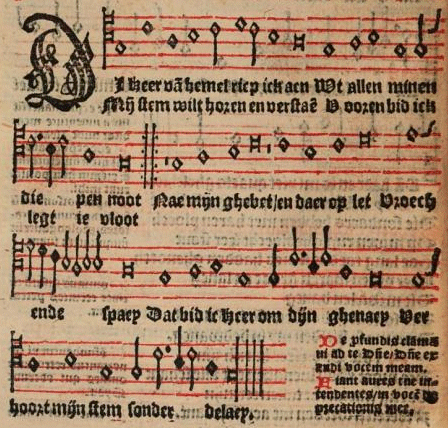 O Heer vā hemel riep ick aen Wt allen minen
Mijn stem wilt horen en verstaē V ooren bid ick
die pen noot Nae mijn ghebet/en daer op let Vroech
legt ie vloot
ende spaey Dat bid ic Heer om dijn ghenaey Ver
hoort mijn stem sonder. delaey.
De pfundis clama
ui ad te Dñe/Dñe ex
audi vocem meam.
Fiant aures tue in
tendentes/in vocē
precationis mee.